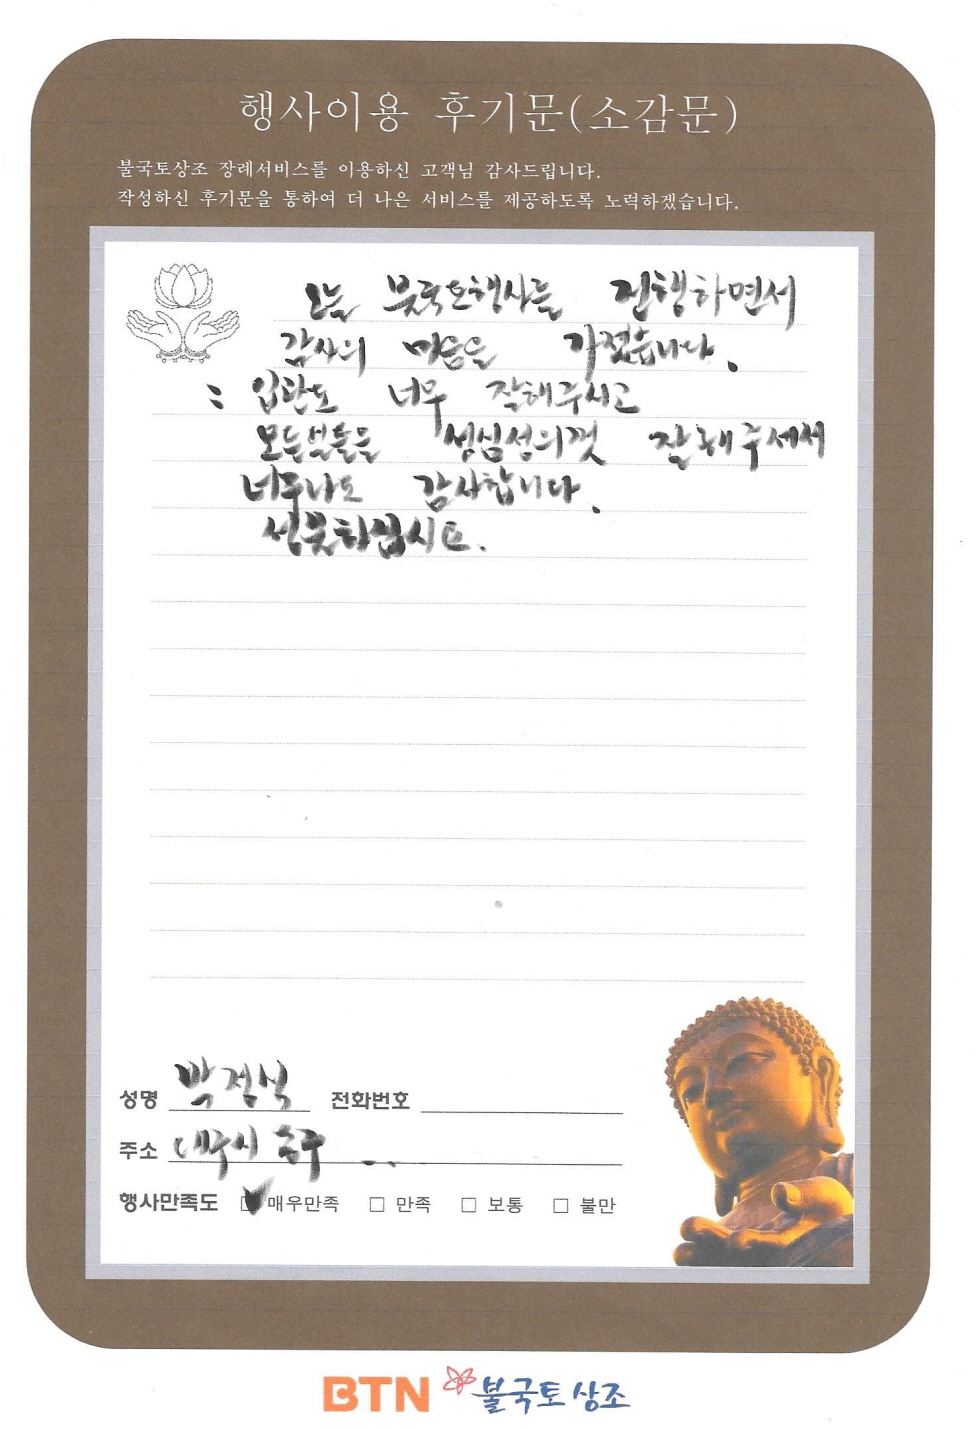 행사이용 후기문(소감문)
불국토상조 장례서비스를 이용하신 고객님 감사드립니다.
작성하신 후기문을 통하여 더 나은 서비스를 제공하도록 노력하겠습니다.
오늘 불국토행사를 진행하면서
감사의 마음을 가졌습니다.
: 입관도 너무 잘해주시고
모든분들을 성심성의껏 잘해주세서
너무나도 감사합니다.
성불하십시요.
성명 박정식 전화번호
주소 대구시
행사만족도 매우만족 만족 보통 불만
BTN 불국토상조